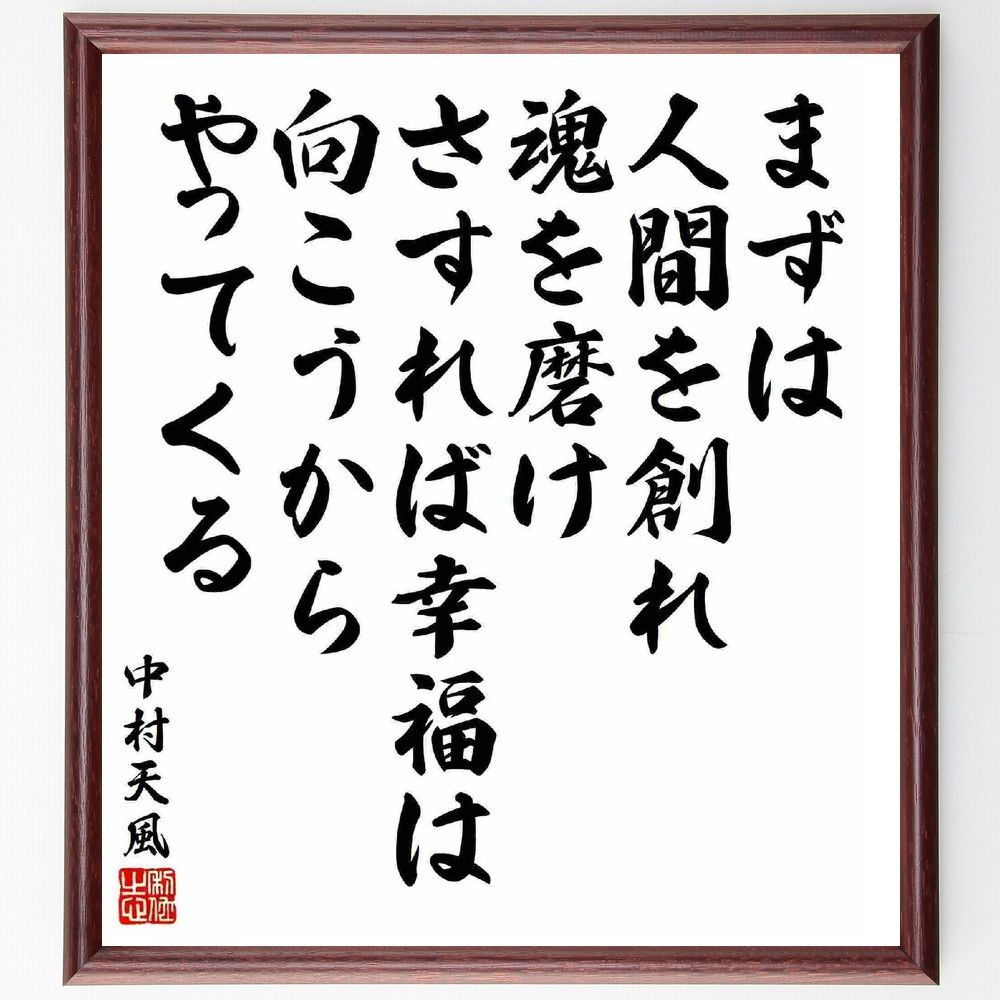 まずは
人間を創れ
魂を磨け
さすれば幸福は
向こうから
やってくる
中村天風